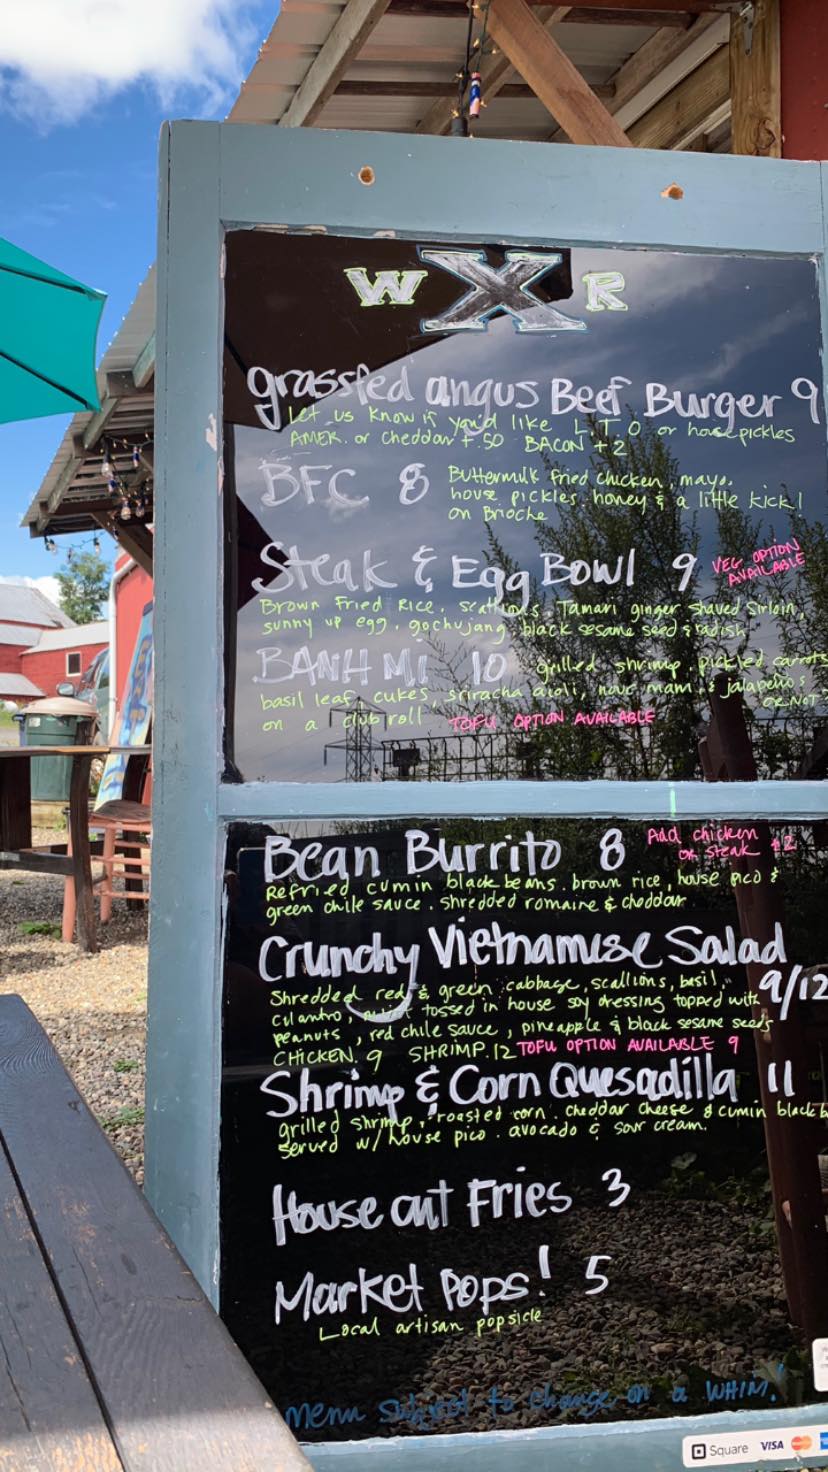 W X R
grassfed angus Beef Burger 9
Let us know if you'd like L.T.O or house pickles
AMER. or cheddar +.50 BACON +2
BFC 8
Buttermilk fried chicken, mayo.
house pickles. honey & a little kick!
on Brioche
Steak & Egg Bowl 9
VEG OPTION
AVAILABLE
Brown Fried Rice. scallions. Tamari ginger shaved sirloin,
sunny up egg. gochujang. black sesame seed & radish
BANH MI 10 grilled shrimp, pickled carrots
basil leaf, cukes, sriracha aioli, nouc mam. & jalapeños
OR NOT
on a club roll TOFU OPTION AVAILABLE
Bean Burrito 8
Add chicken
or steak +2
Refried cumin black beans. brown rice, house pico &
green chile sauce. shredded romaine & cheddar
Crunchy Vietnamese Salad
9/12
Shredded red & green cabbage, scallions, basil,
cilantro, tossed in house soy dressing topped with
peanuts, red chile sauce, pineapple & black sesame seeds
CHICKEN. 9 SHRIMP. 12 TOFU OPTION AVAILABLE 9
Shrimp & Corn Quesadilla 11
grilled shrimp. roasted corn. cheddar cheese & cumin black b
served w/ house pico. avocado & sour cream.
House cut Fries 3
Market Pops! 5
Local artisan popsicle
Menu subject to change on a WHIM!
Square VISA